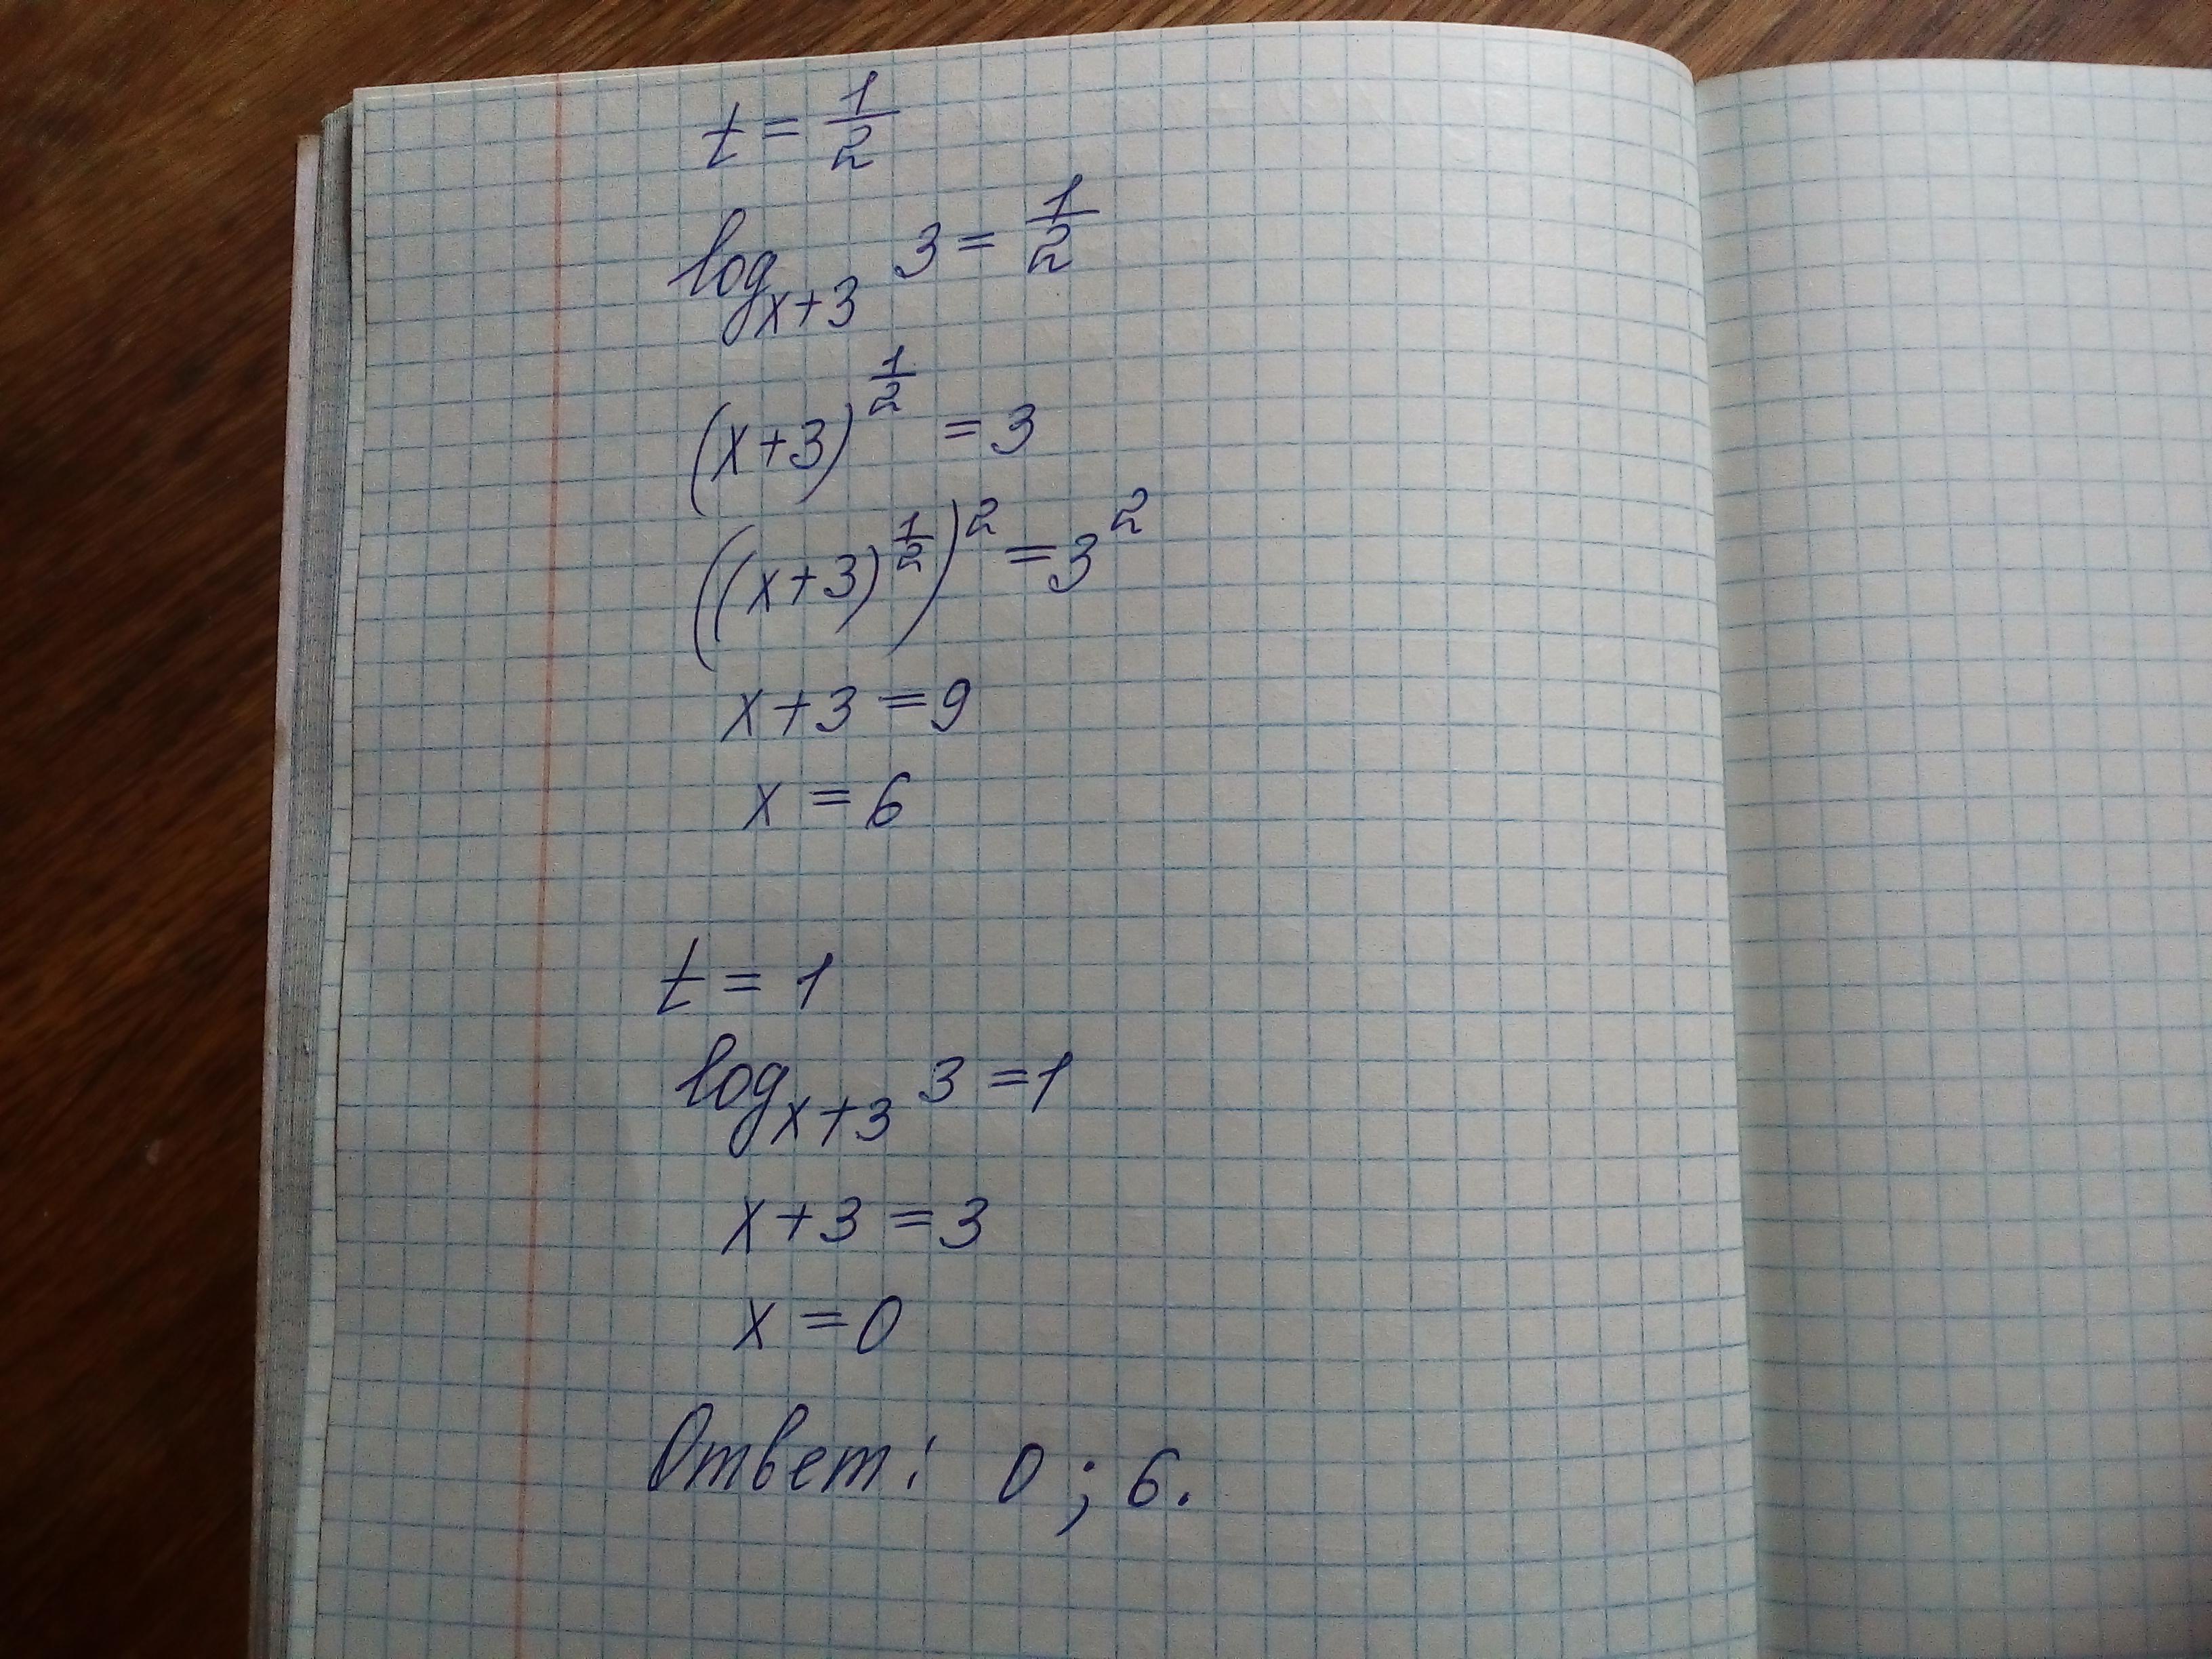 t = 1/2
log_{x+3} 3 = 1/2
(x+3)^{1/2} = 3
((x+3)^{1/2})^2 = 3^2
x+3 = 9
x = 6
t = 1
log_{x+3} 3 = 1
x+3 = 3
x = 0
Ответ: 0 ; 6.